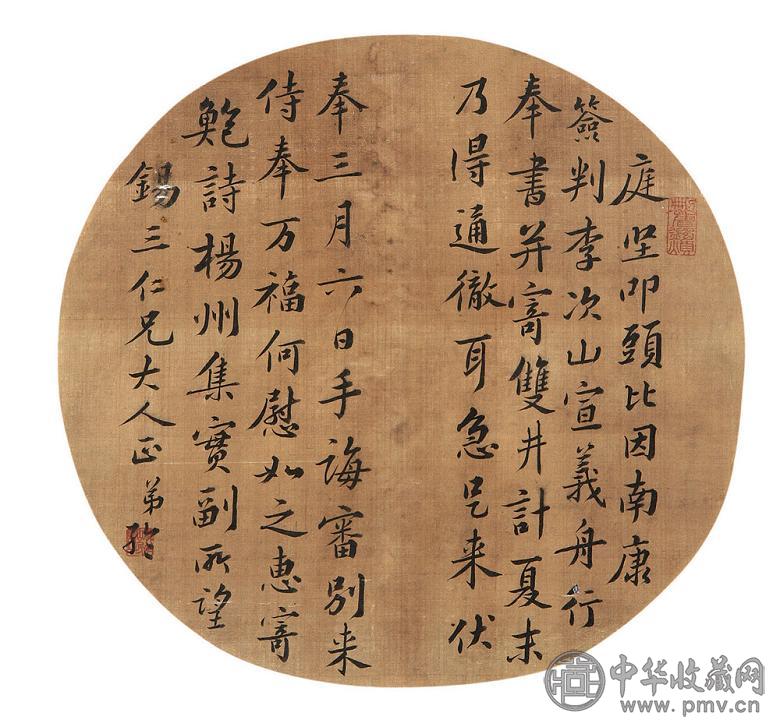 庭坚叩頭比因南康
簽判李次山宣義舟行
奉書并寄雙井計夏末
乃得通徹耳急足来伏
奉三月六日手誨審別来
侍奉万福何慰如之惠寄
鮑詩楊州集實副所望
錫三仁兄大人正 弟
中华收藏网
www.pmv.cn